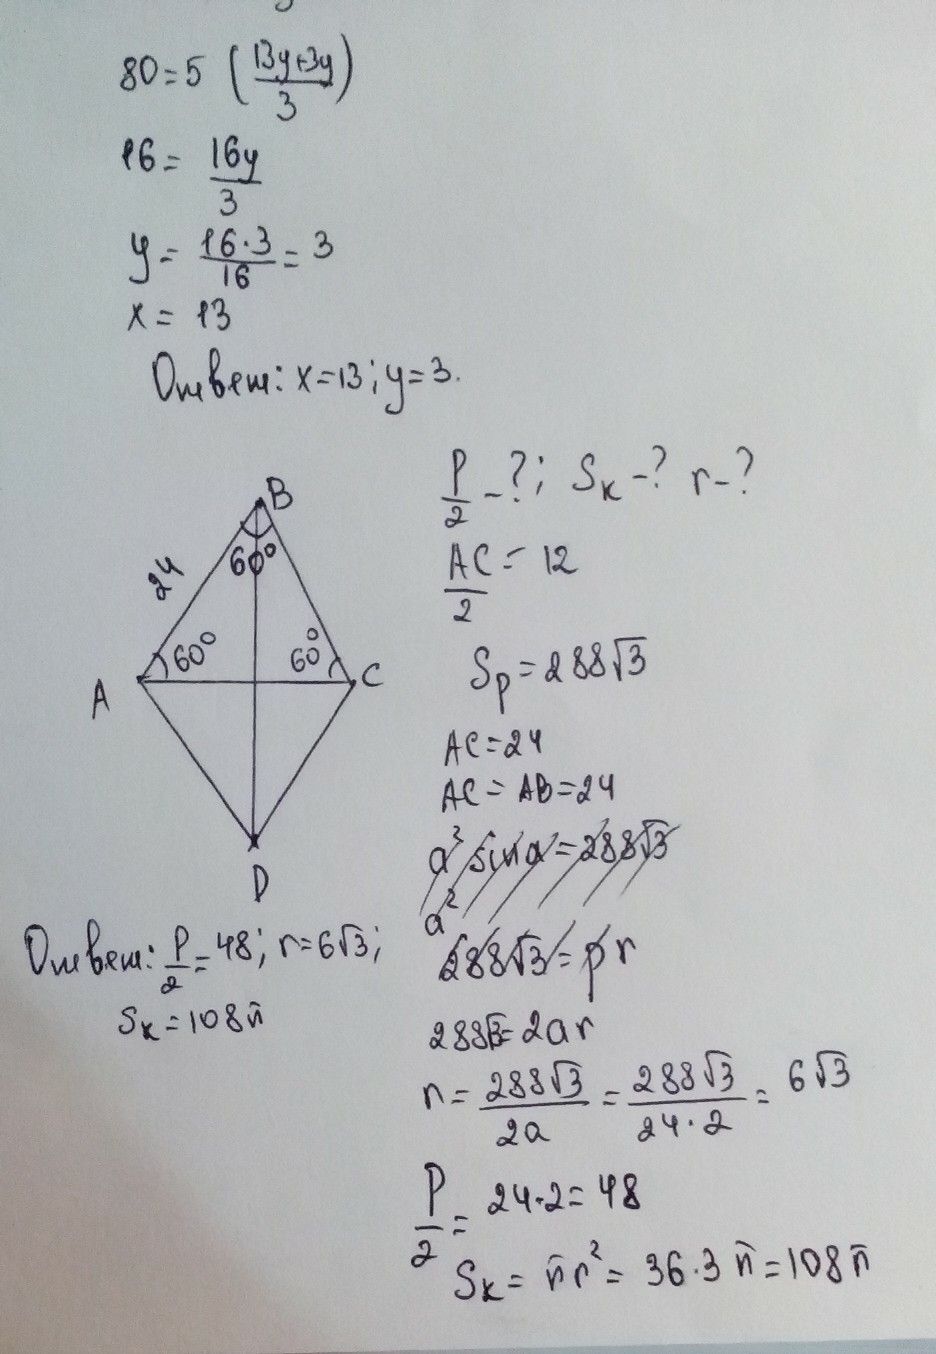 80 = 5 (13y+3y/3)
16 = 16y/3
y = 16·3/16 = 3
x = 13
Ответ: x=13; y=3.
P/2 - ?; Sк - ? r - ?
AC/2 = 12
Sр = 288√3
AC = 24
AC = AB = 24
a² sin a = 288√3
a²
288√3 = p r
288√3 = 2ar
r = 288√3/2a = 288√3/24·2 = 6√3
P/2 = 24·2 = 48
Sк = π r² = 36·3 π = 108π
B
60°
24
60°
60°
A
C
D
Ответ: P/2 = 48; r = 6√3;
Sк = 108π